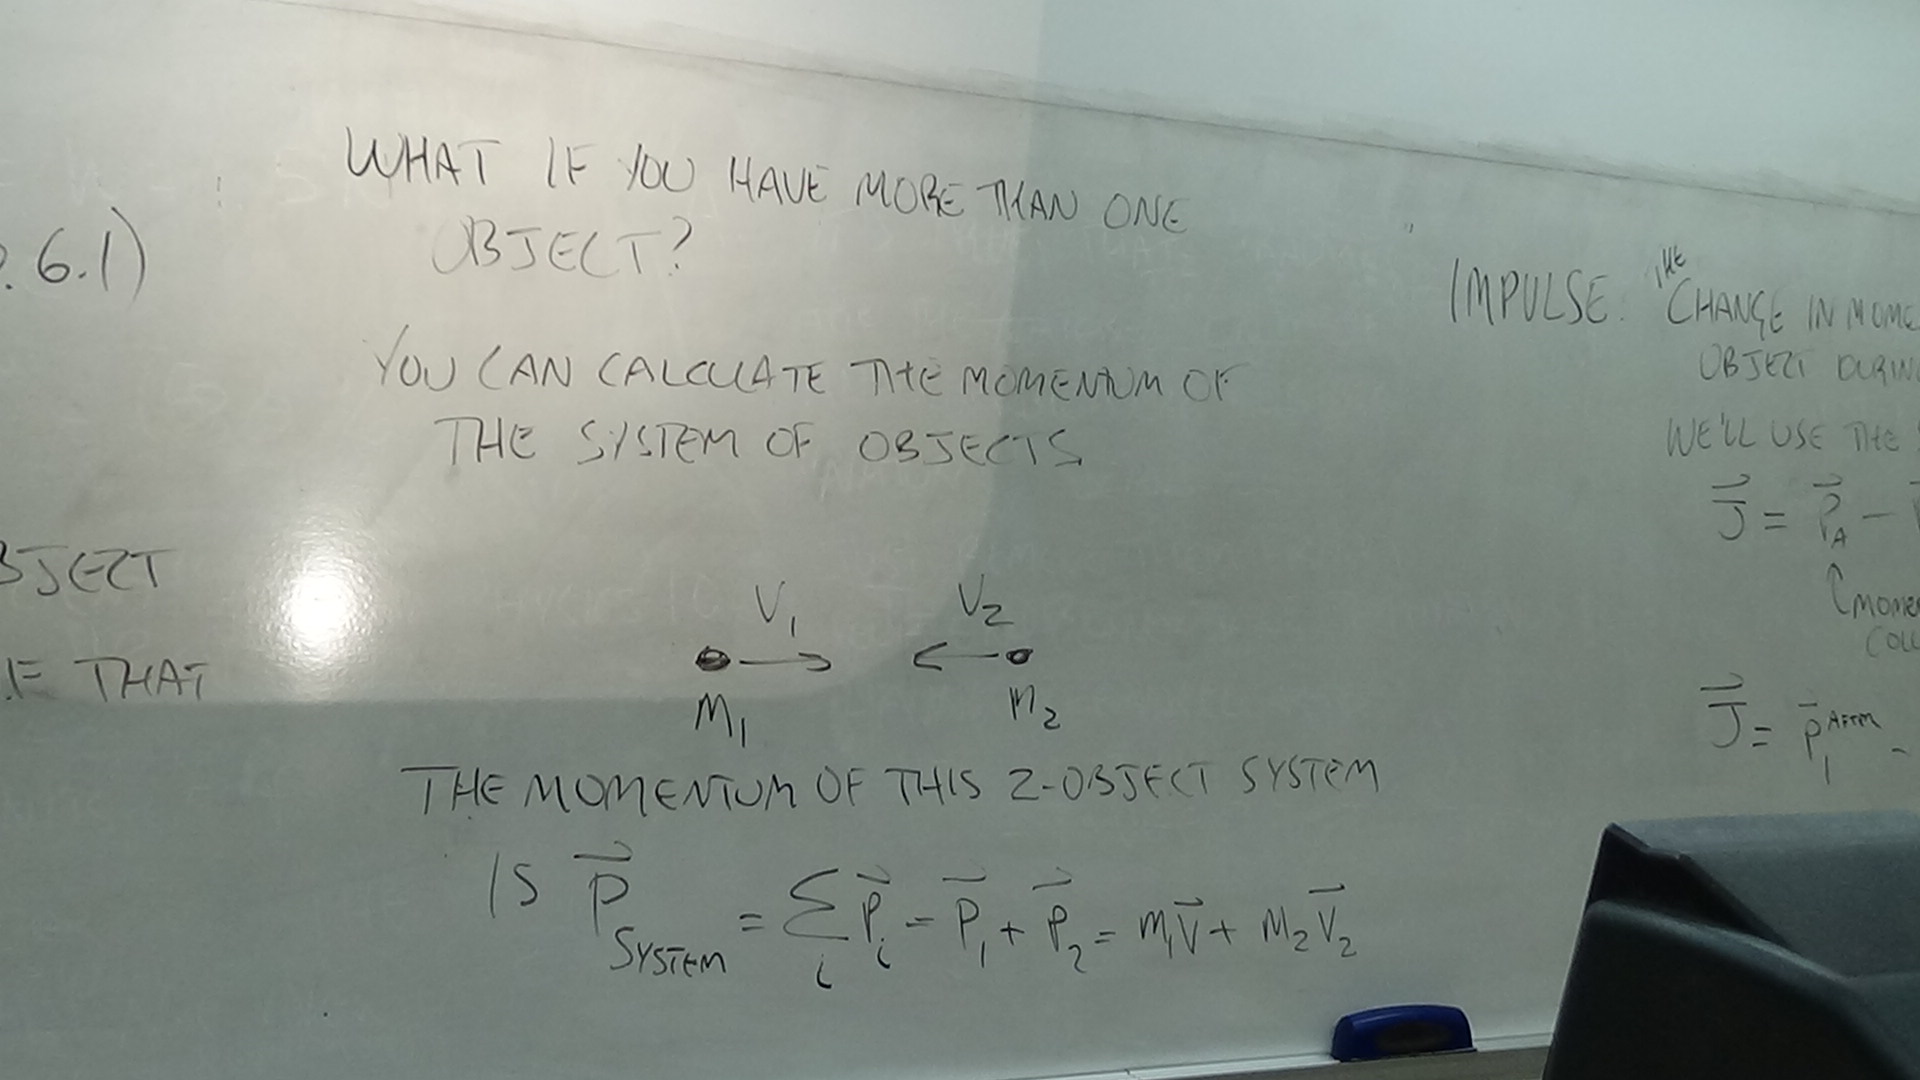 .6.1)
BJECT
IF THAT
WHAT IF YOU HAVE MORE THAN ONE
OBJECT?
YOU CAN CALCULATE THE MOMENTUM OF
THE SYSTEM OF OBJECTS
V₁ V₂
M₁ M₂
THE MOMENTUM OF THIS 2-OBJECT SYSTEM
IS P⃗_SYSTEM = Σ_i P⃗_i = P⃗₁ + P⃗₂ = M₁V⃗ + M₂V⃗₂
IMPULSE: THE CHANGE IN MOME
OBJECT DURIN
WE'LL USE THE
J⃗ = P⃗_A −
↑ MOME
COLL
J⃗ = P⃗₁^AFTER -